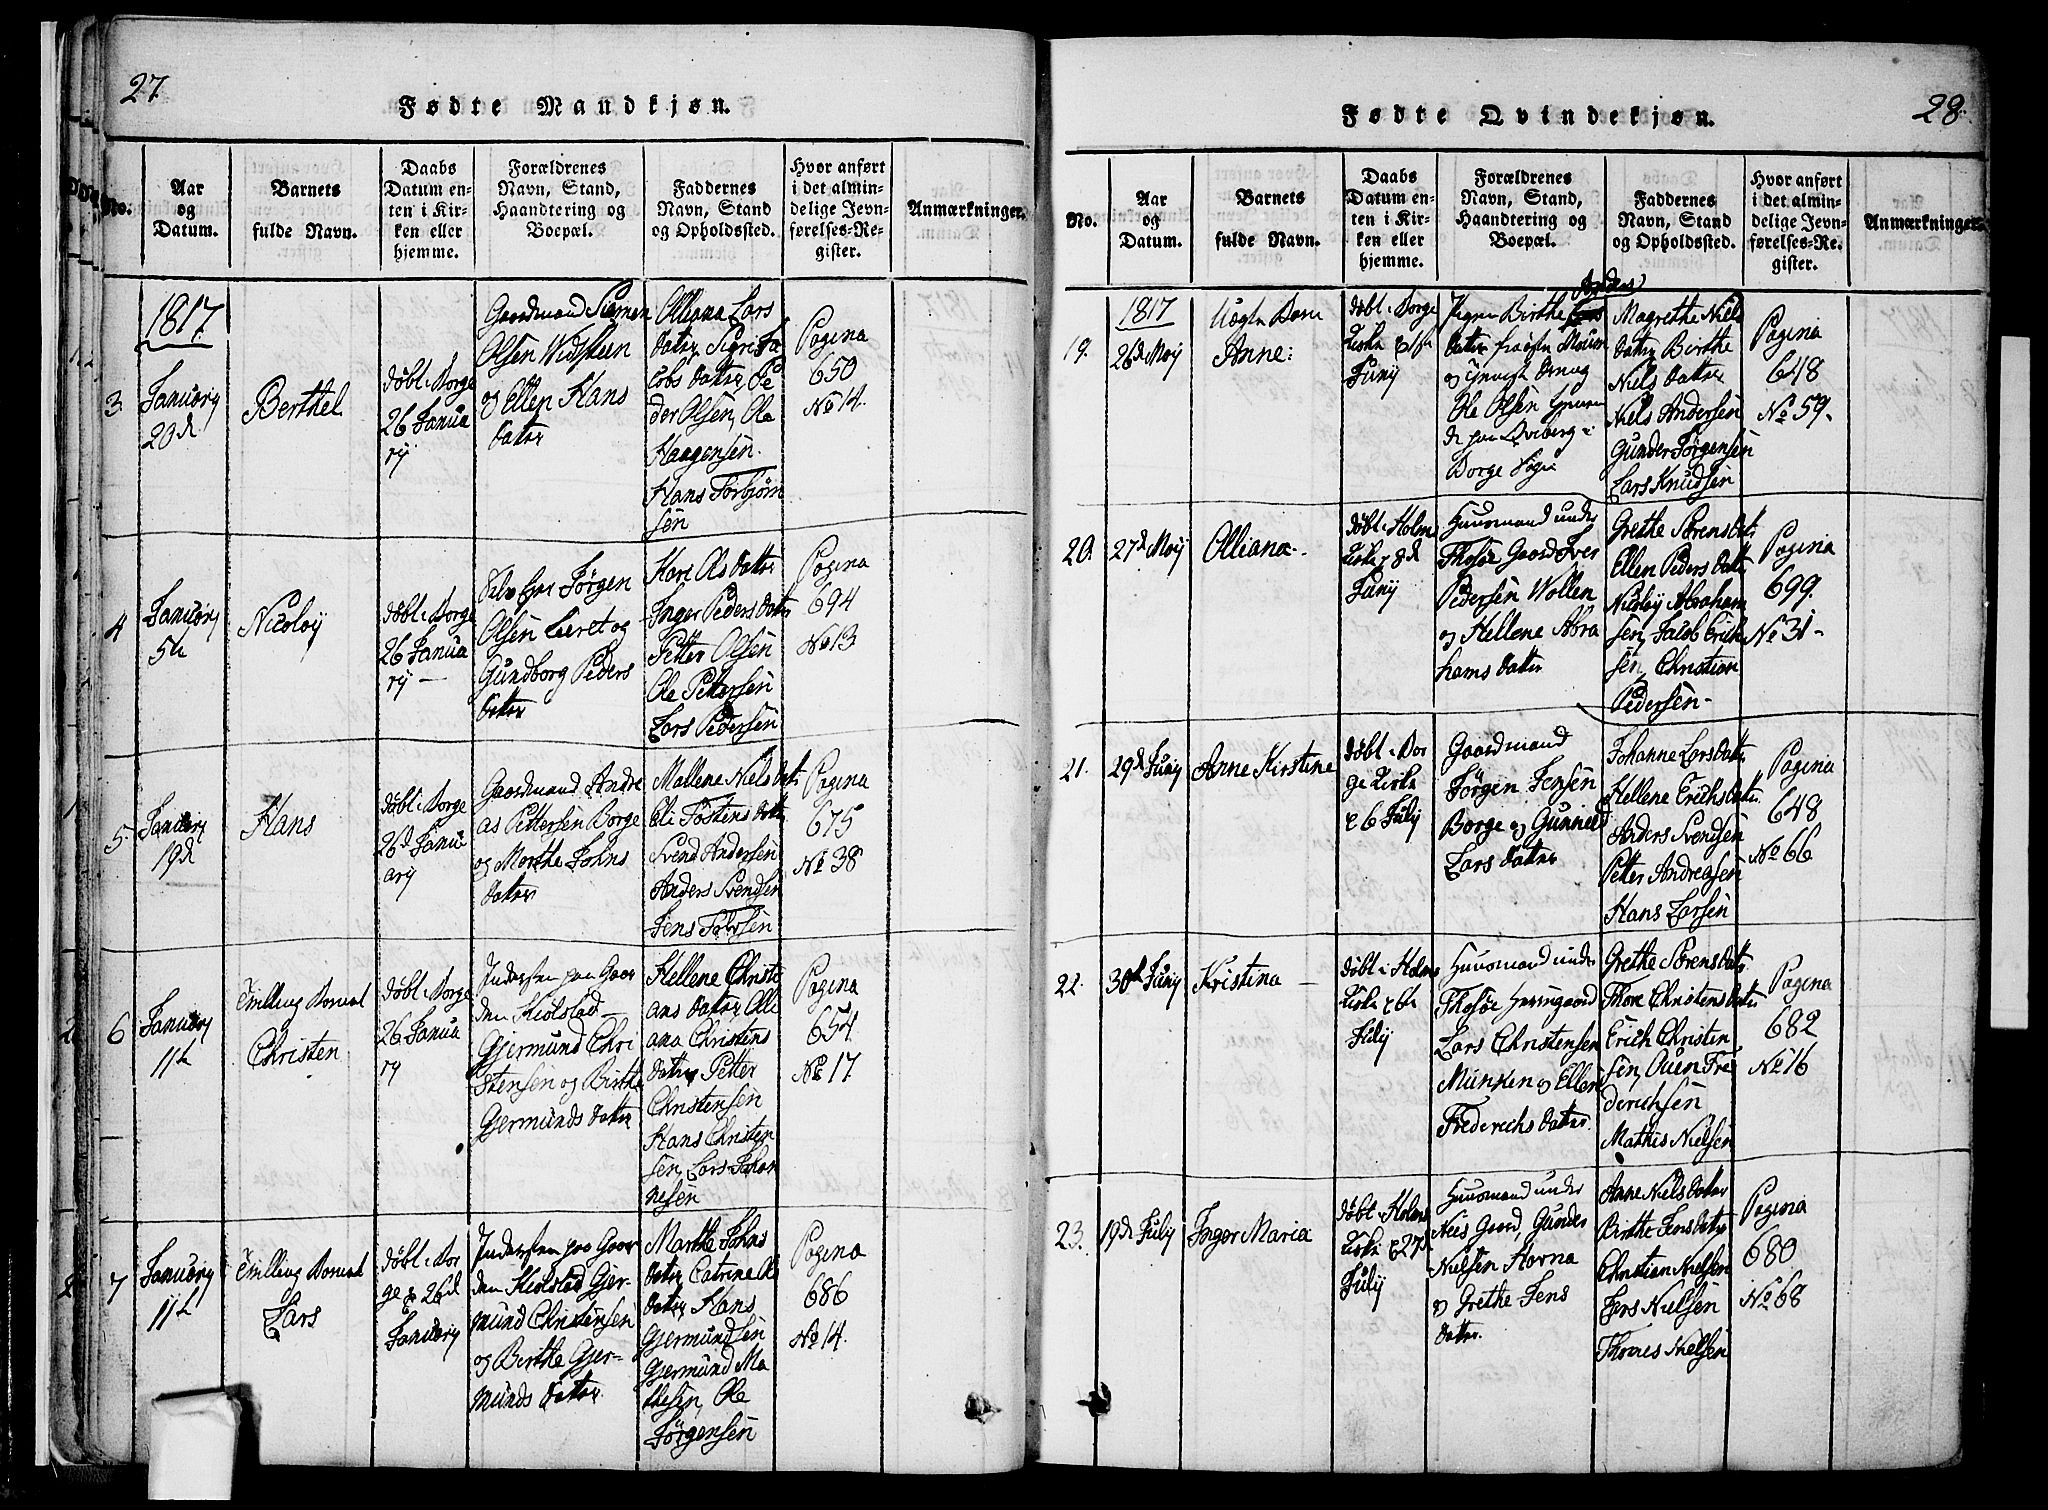 27.
Fødte Mandkjøn.
No.
Aar
og
Datum.
Barnets
fulde Navn.
Daabs
Datum en-
ten i Kir-
ken eller
hjemme.
Forældrenes
Navn, Stand,
Haandtering og
Boepæl.
Faddernes
Navn, Stand
og Opholdssted.
Hvor anført
i det almin-
delige Jevn-
førelses-Re-
gister.
Anmærkninger.
1817.
3.
Januarij
20d
Berthel
døbt i Borge
26 Janua
rij
Gaardmand Siemen
Olsen Widsteen
og Ellen Hans
datter
Olliana Lars
datter Sigri Ja
cobs datter Pe
der Olsen, Ole
Haagensen.
Hans Torbjørn
sen
Pagina
650
No 14.
4
Januarij
5te
Nicolaij
døbt i Borge
26 Janua
rij —
Jørgen
Olsen Leret og
Gundborg Peders
datter
Kari Ols datter
Inger Peders datter
Petter Olsen
Ole Pettersen
Lars Pedersen
Pagina
694
No 13
5.
Januarij
19d
Hans
døbt i Borge
26d Janu
arij
Gaardmand Andre
as Pettersen Borge
og Marthe Johns
datter
Mallene Niels datter
Eli Tostens datter
Svend Andersen
Anders Svendsen
Jens
Pagina
675
No 38
6
Januarij
11te
Tvilling Barnet
Christen
døbt i Borge
26 Janua
rij
Indersten paa Gaar
den Kiolstad
Gjermund Chri
stensen og Birthe
Gjermunds datter
Hellene Christi
ans datter Olli
ana Christens
datter Petter
Christensen
Hans Christen
sen, Lars Johan
nesen
Pagina
654
No 17
7
Januarij
11te
Tvilling Barnet
Lars
døbt i Bor
ge d 26d
Januarij
Indersten paa Gaar
den Kiolstad Gjer-
mund Christensen
og Berthe Gjer-
munds datter
Marthe Johns
datter Catrine Ols
datter Hans
Gjermundsen
Gjermund Ma
thesen, Ole
Jørgensen
Pagina
686
No 14.
28.
Fødte Qvindekjøn.
No.
Aar
og
Datum.
Barnets
fulde Navn.
Daabs
Datum en-
ten i Kir-
ken eller
hjemme.
Forældrenes
Navn, Stand,
Haandtering og
Boepæl.
Faddernes
Navn, Stand
og Opholdssted.
Hvor anført
i det almin-
delige Jevn-
førelses-Re-
gister.
Anmærkninger.
1817
19.
26d Maij
Uægte Barn
Anne:
døbt i Borge
Kirke d 1te
Junij
Pigen Birthe
Anders
datter fra øste Moum
og
Ole Olsen
de paa Qviberg i
Borge Sogn
Magrethe Niels
datter Birthe
Niels datter
Niels Andersen
Gunder Jørgensen
Lars Knudsen
Pagina
648
No 59.
20.
27d Maij
Olliana.
døbt i Holms
Kirke 8d
Junij
Huusmand under
Thosøe Gaard Iver
Pedersen Wollen
og Hellene Abra
hams datter
Grethe Sørens datter
Ellen Peders datter
Nicolaij Abraham
sen, Jacob Erich
sen, Christian
Pedersen
Pagina
699.
No 31
21.
29d Junij
Anne Kirstine
døbt i Bor
ge Kirke
d 6 Julij
Gaardmand
Jørgen Jensen
Borge og Gunneld
Lars datter
Johanne Lars datter
Hellene Erichs datter
Anders Svendsen
Petter Andreasen
Hans Larsen
Pagina
648
No 66
22.
30d Junij
Kristina
døbt i Holms
Kirke d 6te
Julij
Huusmand under
Thosøe Herregaard
Lars Christensen
Munken og Ellen
Frederichs datter
Grethe Sørens datter
Thore Christens datter
Erich Christen
sen, Ouen Fre
derichsen
Mathis Nielsen
Pagina
682
No 16
23.
19d Julij
Inger Maria
døbt i Holms
Kirke d 27d
Julij
Huusmand under
Niis Gaard, Gunder
Nielsen Horna
og Grethe Jens
datter.
Anne Niels datter
Birthe Jens datter
Christian Nielsen
Jens Nielsen
Thores Nielsen
Pagina
680
No 68